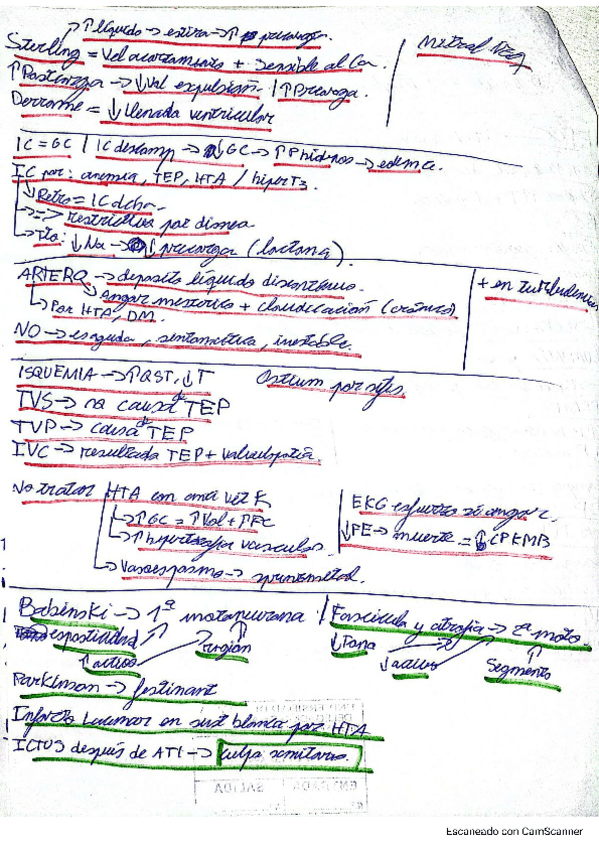 ↑ líquido → estira → ↑ precarga.
Starling = Vel acortamiento + sensible al Ca.
Mitral
↑ Postcarga → ↓ Vol expulsión. / ↑ Precarga.
Derrame = ↓ llenado ventricular
IC = GC / IC descomp → ↓ GC → ↑ P hidros → edema.
IC por: anemia, TEP, HTA / hiperT3
↓ Retro = IC dcha.
→ restrictiva por disnea
→ Tto: ↓ Na → ↓ precarga (
ARTERO → deposito líquido
+ en turbulencias
Angor mesentérico + claudicación (crónico)
→ Por HTA, DM.
NO → aguda, sintomática, inestable.
ISQUEMIA → ↑ QST, ↓ T
Ostium por sífilis
TVS → no causa de TEP
TVP → causa de TEP
IVC → resultado TEP + valvulopatía
No tratar HTA con una vez
→ ↑ GC = ↑ Vol + ↑ FC
→ ↑ hipertrofia vascular
→ Vasoespasmo → prinzmetal.
EKG esfuerzo si angor e.
↓ FE → muerte = ↑ CPKMB
Babinski → 1ª motoneurona / Fascicula y atrofia → 2ª moto.
espasticidad
↓ Tono
↑ activos
Región
↓ activos
Segmento
Parkinson → festinant
Infarto lacunar en sust blanca por HTA
ICTUS después de ATI → culpa
SALIDA
Escaneado con CamScanner